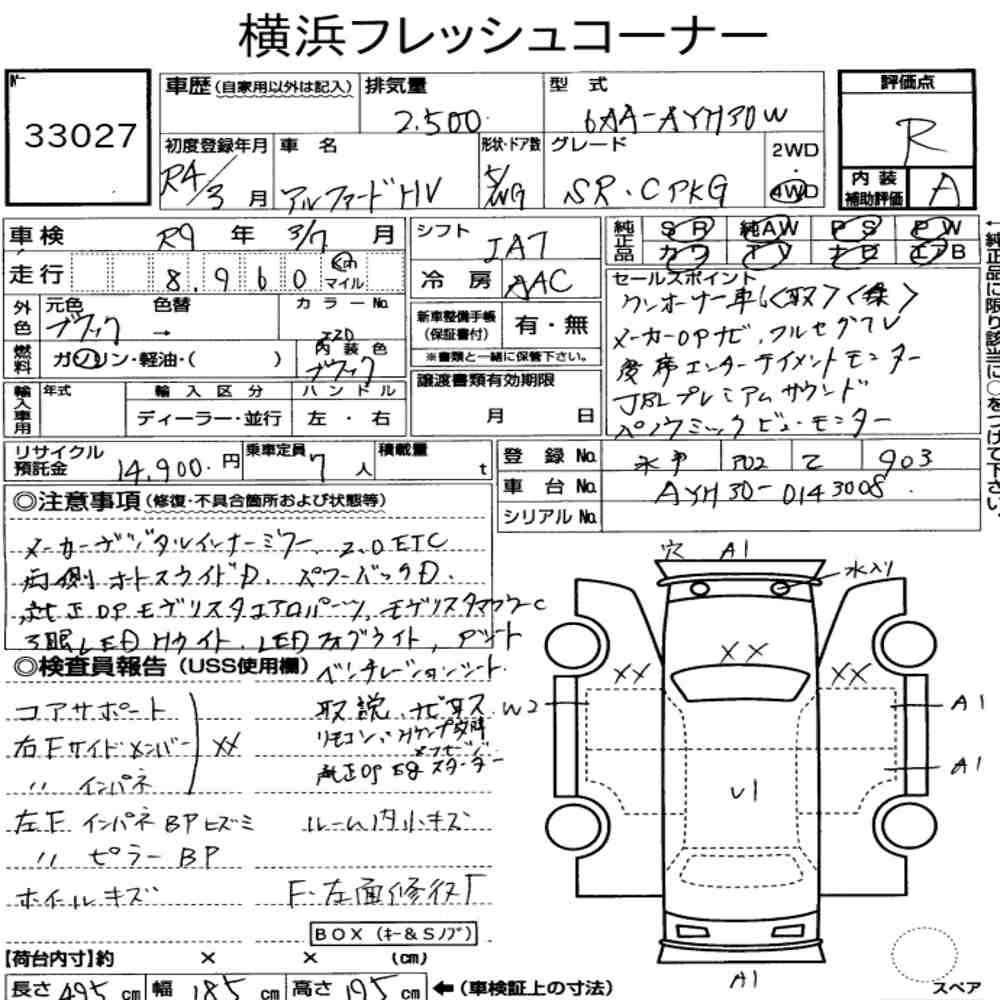 横浜フレッシュコーナー
№
33027
車歴 (自家用以外は記入)
排気量
2.500
型 式
6AA-AYH30W
評価点
R
初度登録年月
R4/3 月
車 名
アルファードHV
形状・ドア数
5/WG
グレード
SR.CPKG
2WD
4WD
内装補助評価
A
車検 R9 年 3/7 月
シフト
IAT
純正品
SR 純AW PS PW
カワ TV ナビ エアB
走行 8,960 Km マイル
冷房 AAC
セールスポイント
ワンオーナー車
メーカーOPナビ、フルセグTV
後席エンターテイメントモニター
JBLプレミアムサウンド
パノラミックビューモニター
←純正品に限り該当に○をつけて下さい。
外色
元色
ブラック
色替
→
カラーNo.
220
新車整備手帳
(保証書付)
有・無
※書類と一緒に保管下さい。
燃料
ガソリン・軽油・( )
内装色
ブラック
輸入車用
年式
輸入区分
ディーラー・並行
ハンドル
左・右
譲渡書類有効期限
月 日
リサイクル預託金
14,900. 円
乗車定員
7 人
積載量
t
登録No. 水戸 302 て 903
車台No. AYH30-0143008.
シリアルNo.
◎注意事項 (修復・不具合箇所および状態等)
メーカーデジタルインナーミラー、2.0ETC
両側オートスライドD. パワーバックD.
純正OPモデリスタエアロパーツ、モデリスタマフラーC
3眼LEDHライト.LEDフォグライト,Pシート
ベンチレーションシート.
◎検査員報告 (USS使用欄)
コアサポート
右Fサイドメンバー XX
〃 インパネ
左F インパネBPヒズミ
〃 ピラーBP
ホイールキズ
取説、ナビ
純正OP Egスターター
ルーム内小キズ
F・左面修復
BOX (キー&Sノブ)
穴 A1
水入り
XX
XX
XX
W2
A1
A1
U1
A1
スペア
【荷台内寸】約 × × (cm)
長さ 495 cm 幅 185 cm 高さ 195 cm ←(車検証上の寸法)